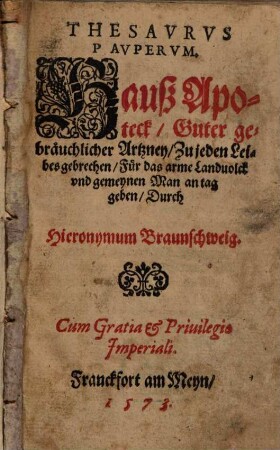 THESAVRVS
PAVPERVM.
Hauß Apo-
teck / Guter ge-
bräuchlicher Artzney / Zu jeden Lei-
bes gebrechen / Für das arme Landuolck
vnd gemeynen Man an tag
geben / Durch
Hieronymum Braunschweig.
Cum Gratia & Priuilegio
Imperiali.
Franckfort am Meyn /
1573.